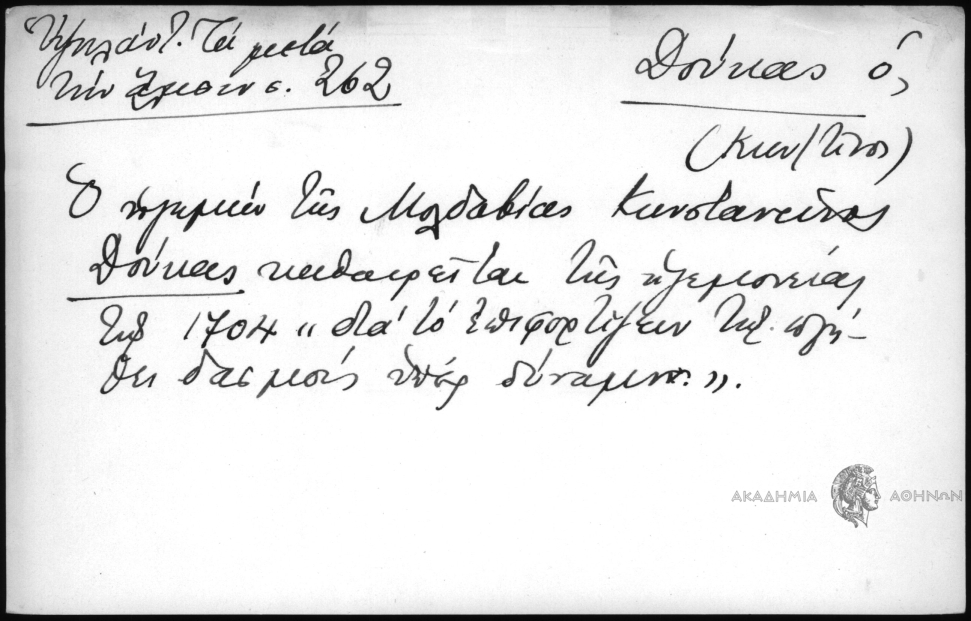 Ὑψηλάντ. Τά μετά
τήν ἅλωσιν σ. 262
Δούκας ὁ,
(Κων/τῖνος)
Ὁ ἡγεμών τῆς Μολδαβίας Κωνσταντῖνος
Δούκας καθαιρεῖται τῆς ἡγεμονείας
τῷ 1704 « διά τό ἐπιφορτίζειν τούς
δασμούς ὑπέρ δύναμιν ».
ΑΚΑΔΗΜΙΑ ΑΘΗΝΩΝ